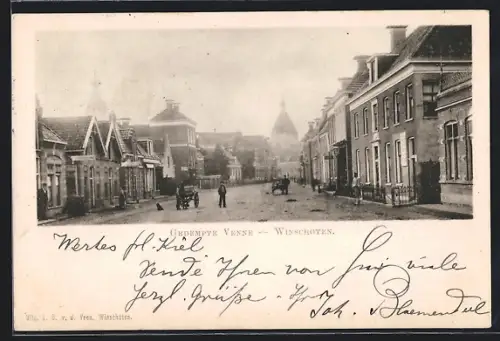 GEDEMPTE VENNE — WINSCHOTEN.
Wertes frl. Kiel
Sende Ihren von hier viele
herzl. Grüsse - Ihr Joh. Bloemendal
Uitg. A. G. v. d. Veen, Winschoten.